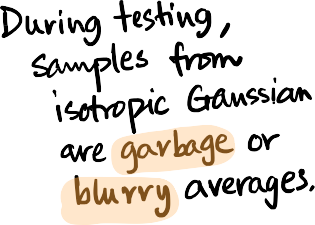 During testing,
samples from
isotropic Gaussian
are garbage or
blurry averages.